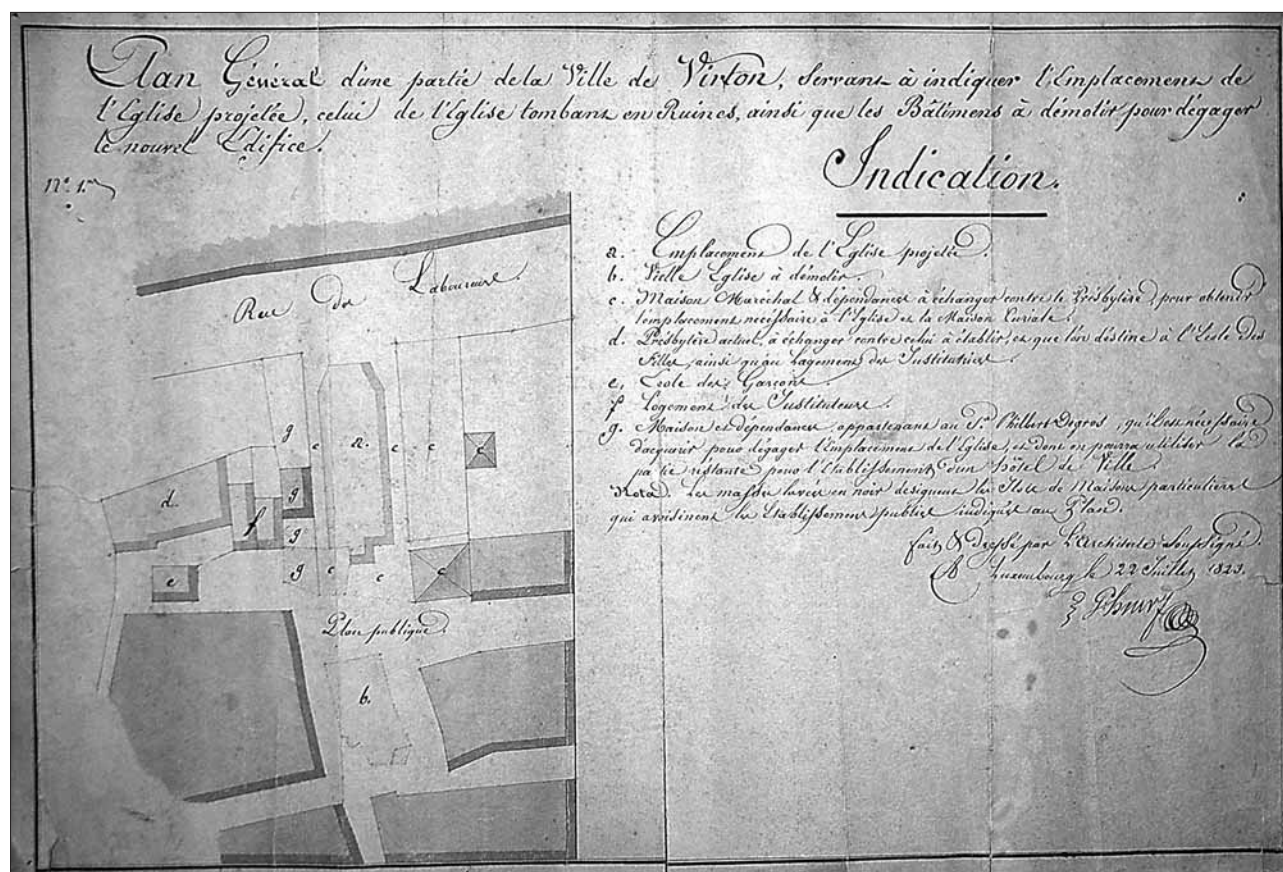 Plan Général d'une partie de la Ville de Virton, Servant à indiquer l'Emplacement de
l'Eglise projetée, celui de l'Eglise tombant en Ruines, ainsi que les Bâtimens à démolir pour dégager
le nouvel Edifice.
N.º 1.er
Indication.
a. Emplacement de l'Eglise projetée.
b. Vielle Eglise à démolir.
c. Maison Maréchal & dépendances à échanger contre le Presbytère, pour obtenir
l'emplacement nécessaire à l'Eglise et la Maison Curiale.
d. Présbytère actuel, à échanger contre celui à établir, et que l'on déstine à l'Ecole des
Filles, ainsi qu'au Logement des Institutrices.
e. Ecole des Garçons
f. Logement des Instituteurs.
g. Maison et dépendances, appartenant au Sr. Philbert Degros, qu'il est nécessaire
d'acquérir pour dégager l'Emplacement de l'Eglise, et dont on pourra utiliser la
partie réstante pour l'Etablissement d'un hôtel de Ville.
Nota. Les masses lavées en noir désignent les Ilots de Maisons particulières
qui avoisinent les Etablissemens publics indiqués au Plan.
fait & dressé par l'Architecte Soussigné.
Luxembourg le 22 Juillet 1823.
Rue des Laboureurs.
g
c
a.
c
c
c
d.
f
g
g
e
g
c
c
c
Place publique.
b.